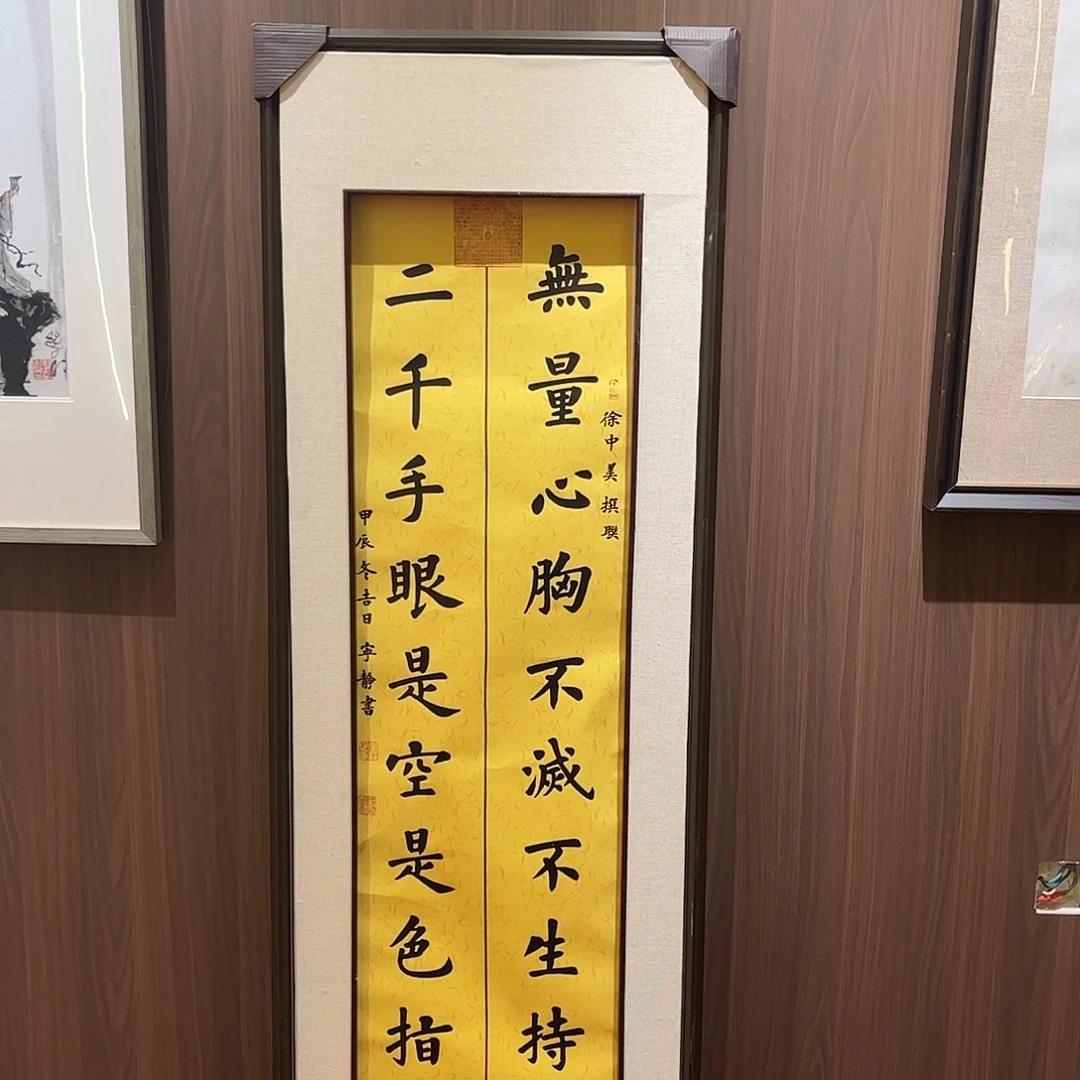 無量心胸不滅不生持
徐中美撰联
二千手眼是空是色指
甲辰冬吉日寜静書